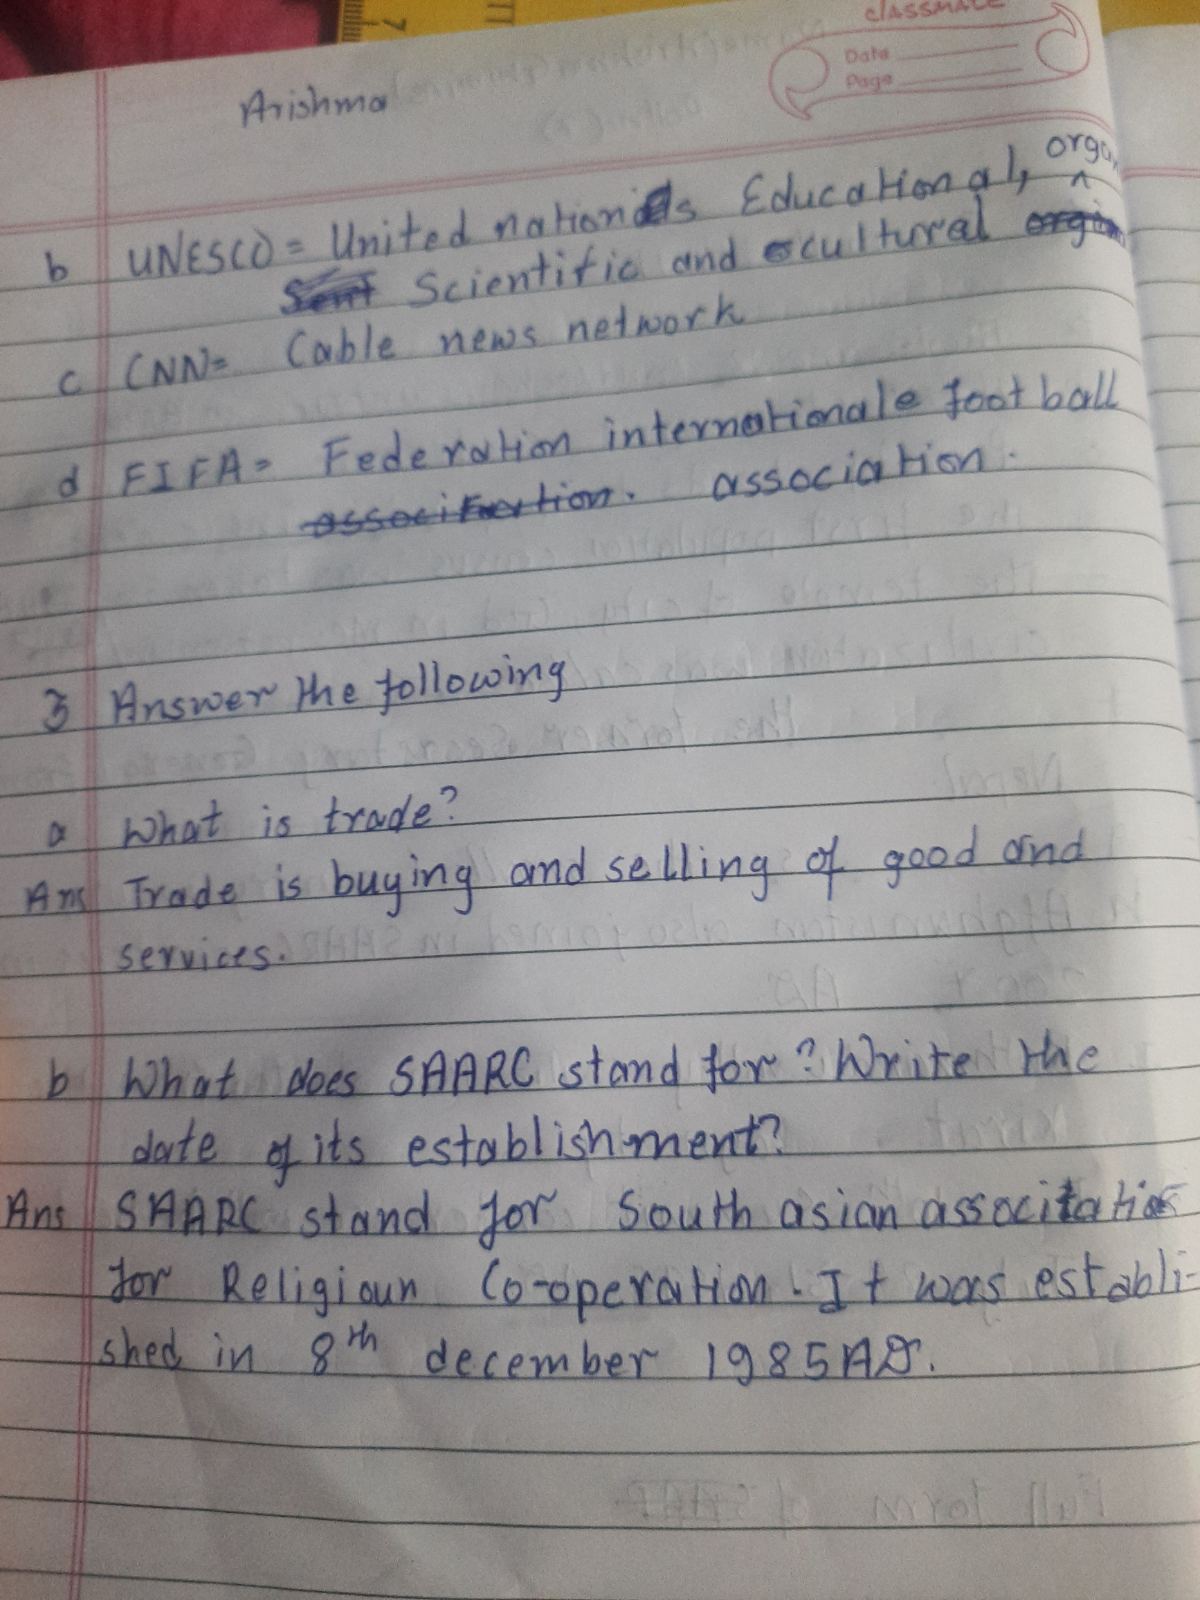 classmate
Date
Page
Arishma
b UNESCO = United nations Educational, orga
Scientific and cultural
c CNN= Cable news network
d FIFA= Federation internationale football
association.
3 Answer the following
a What is trade?
Ans Trade is buying and selling of good and
services.
b What does SAARC stand for? Write the
date of its establishment?
Ans SAARC stand for South asian
for Religioun Co-operation. It was establi-
shed in 8th december 1985 AD.